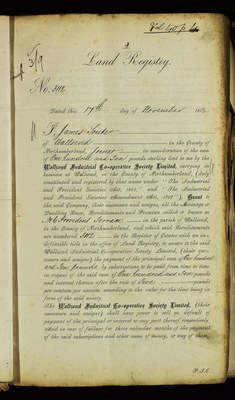 Land Registry.
No. 302
Dated this 17th day of November 18
I, James Souter
of Wallsend in the County of
Northumberland, Joiner in consideration of the sum
of One hundred and Ten pounds sterling lent to me by the
Wallsend Industrial Co-operative Society Limited, carrying on
business at Wallsend, in the County of Northumberland, (duly
constituted and registered by that name under "The Industrial
and Provident Societies Act, 1862," and "The Industrial
and Provident Societies Amendment Act, "), Grant to
the said Company, their successors and assigns, all the Messuage or
Dwelling House, Hereditaments and Premises called or known as
Terrace in the parish of Wallsend,
in the County of Northumberland, and which said Hereditaments
are numbered 302 in the Register of Estates with an in-
defeasible title in the office of Land Registry, to secure to the said
Wallsend Industrial Co-operative Society Limited, (their suc-
cessors and assigns) the payment of the principal sum of One hundred
and Ten pounds by subscriptions to be paid from time to time
in respect of the said sum of One hundred and Ten pounds
and interest thereon after the rate of Five pounds
per centum per annum according to the rules for the time being in
force of the said society
The Wallsend Industrial Co-operative Society Limited, (their
successors and assigns) shall have power to sell on default of
payment of the principal or interest or any part thereof respectively,
and in case of failure for three calendar months of the payment
of the said subscriptions and other sums of money, or any of them,